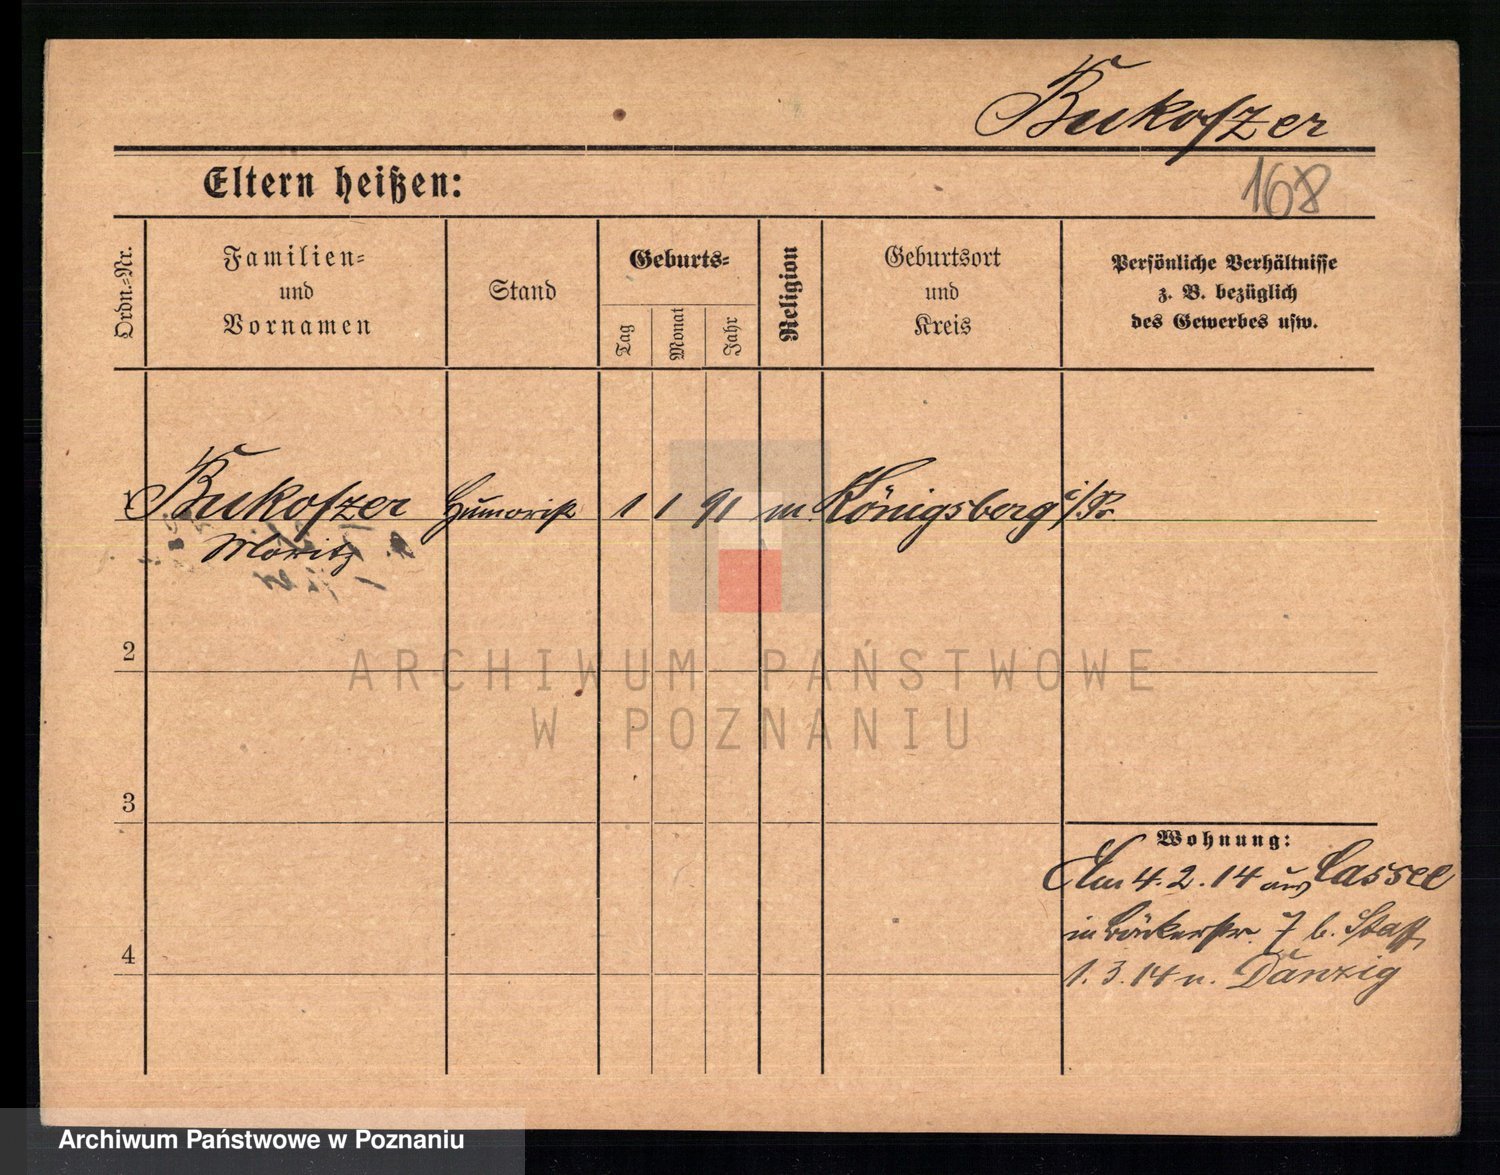 Bukofzer
168
Eltern heißen:
Ordn.-Nr.
Familien-
und
Vornamen
Stand
Geburts-
Tag
Monat
Jahr
Religion
Geburtsort
und
Kreis
Persönliche Verhältnisse
z. B. bezüglich
des Gewerbes usw.
1 Bukofzer Humorist 1 1 91 m. Königsberg i/Pr.
Moritz
2
3
4
Wohnung:
Am 4.2.14 aus Cassel
in Bäckerstr. 7 b.
1.3.14 n. Danzig
ARCHIWUM PAŃSTWOWE
W POZNANIU
Archiwum Państwowe w Poznaniu